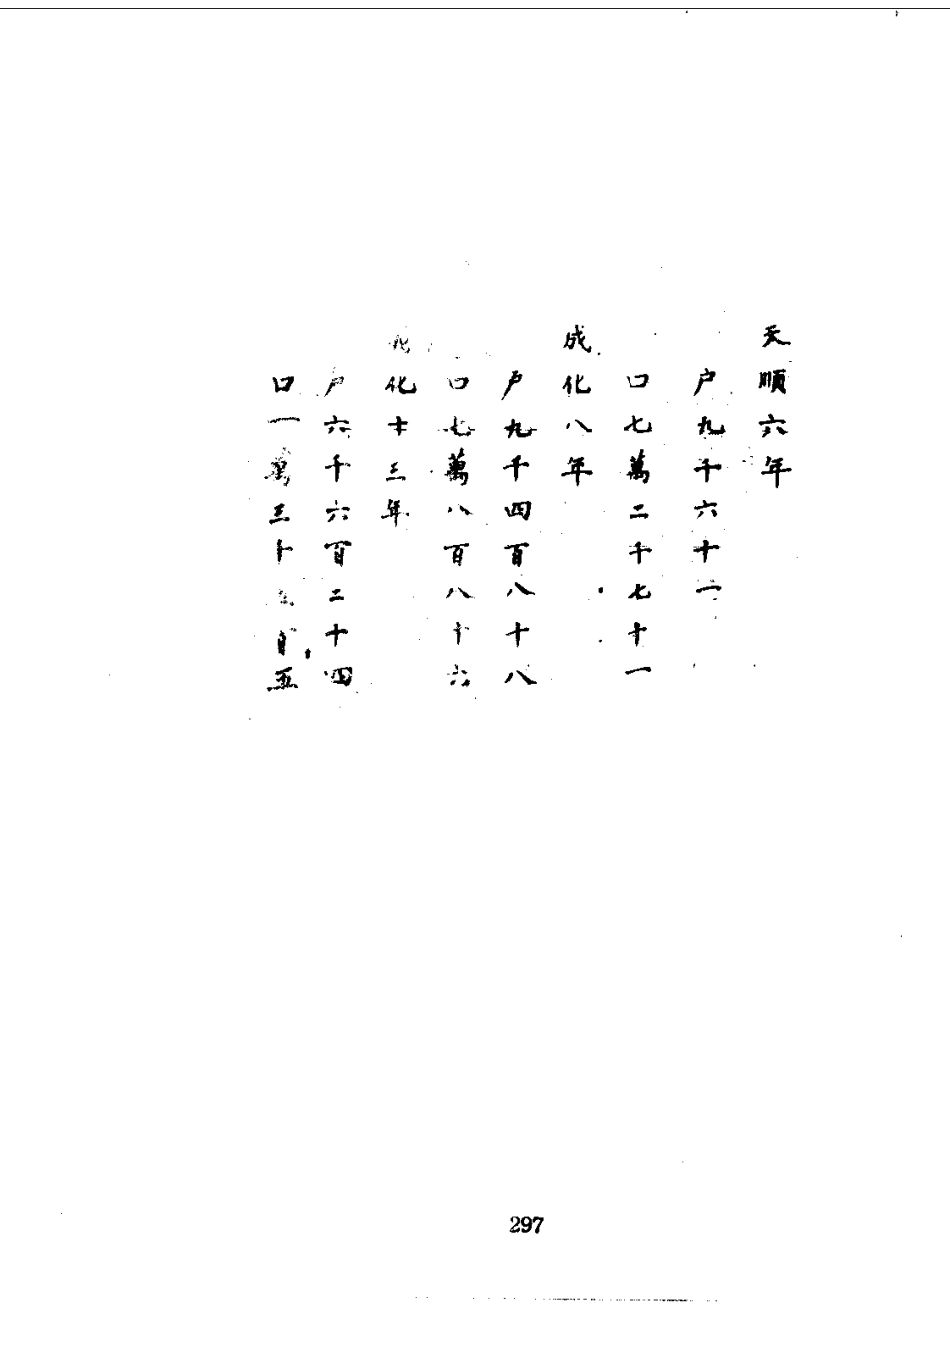 天順六年
户九千六十一
口七萬二千七十一
成化八年
户九千四百八十八
口七萬八百八十六
化十三年
户六千六百二十四
口一萬三 百五
297